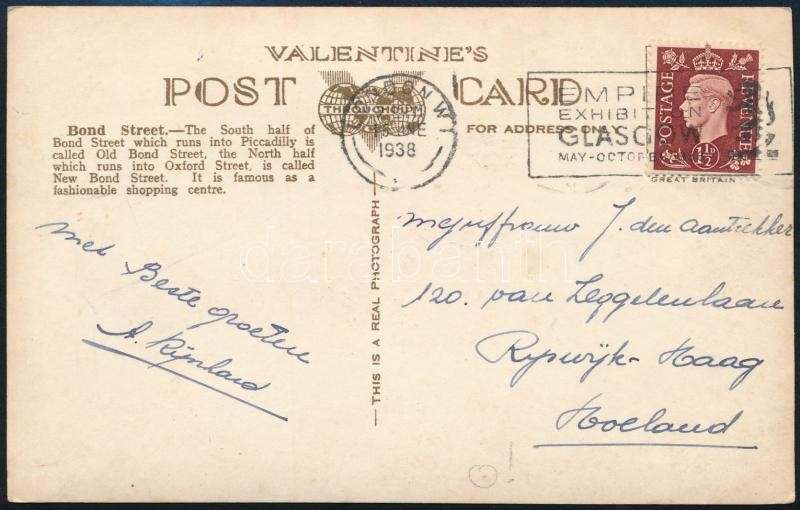 VALENTINE'S
POST CARD
THROUGHOUT
FOR ADDRESS ONLY
Bond Street.—The South half of
Bond Street which runs into Piccadilly is
called Old Bond Street, the North half
which runs into Oxford Street, is called
New Bond Street. It is famous as a
fashionable shopping centre.
1938
EMPIRE
EXHIBITION
GLASGOW
MAY-OCTOBER
POSTAGE
REVENUE
1½D
GREAT BRITAIN
THIS IS A REAL PHOTOGRAPH
Met Beste groeten
A. Rijnlard
Mejuffrouw J. den Aantrekker
120. van Leggelenlaan
Ryswijk-Haag
Hoeland
darabanth
.com